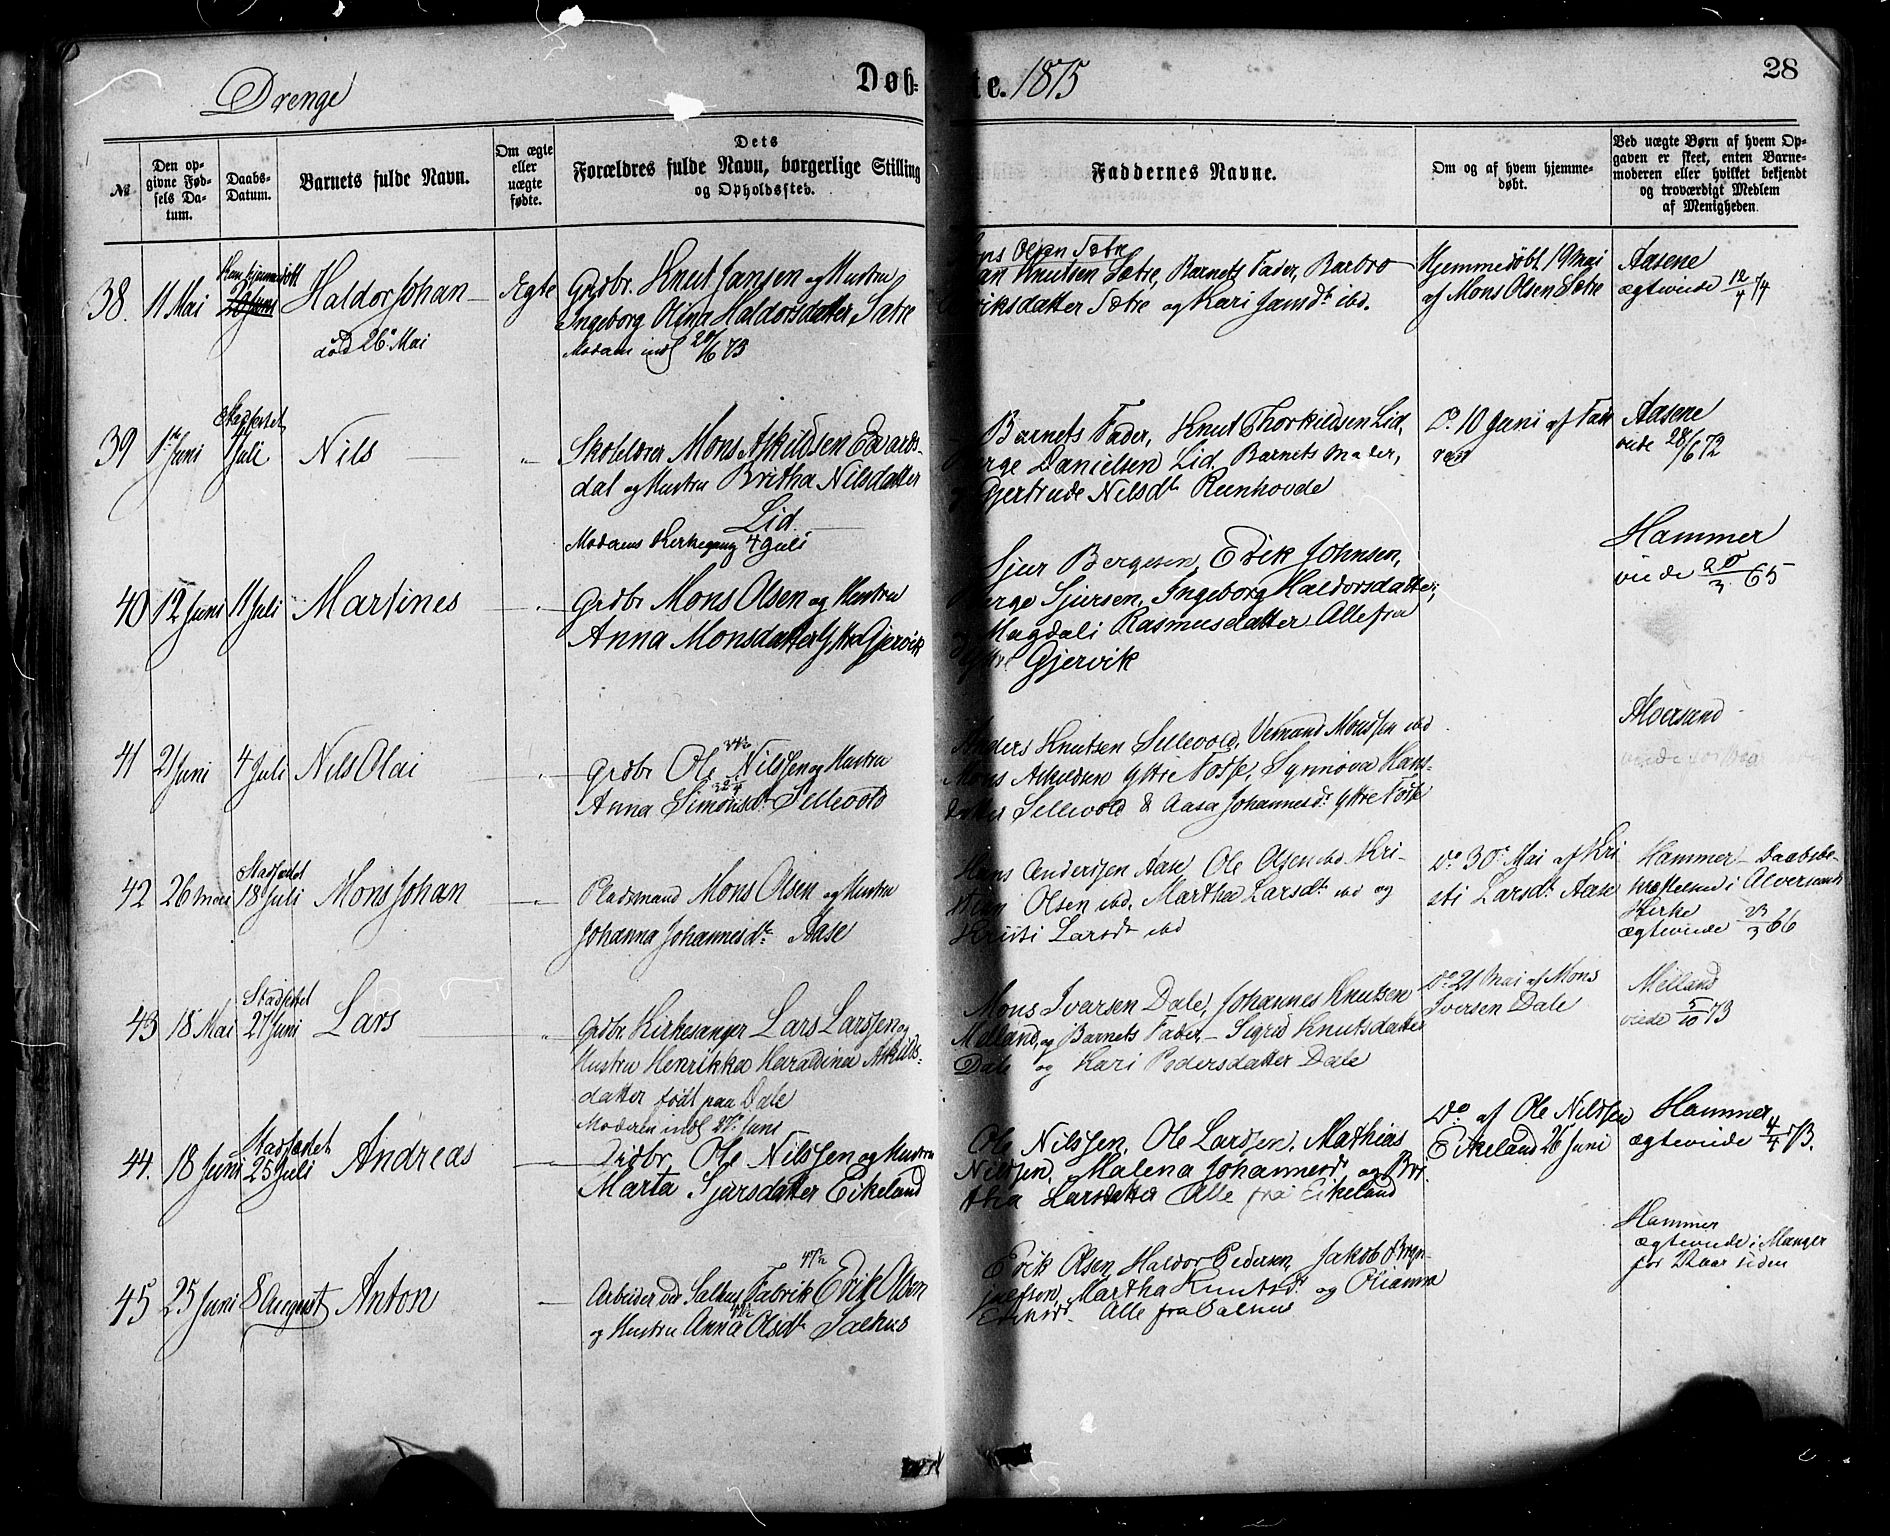 Drenge
Døb-
te. 1875
28
№
Den op-
givne Fød-
sels Da-
tum.
Daabs-
Datum.
Barnets fulde Navn.
Om ægte
eller
uægte
fødte.
Dets
Forældres fulde Navn, borgerlige Stilling
og Opholdssted.
Faddernes Navne.
Om og af hvem hjemme-
døbt.
Ved uægte Børn af hvem Op-
gaven er skeet, enten Barne-
moderen eller hvilket bekjendt
og troværdigt Medlem
af Menigheden.
38. 11 Mai
Kun hjemmedøbt
Haldor Johan
død 26 Mai
Ægte
Grdbr. Knut Jansen og Hustru
Ingeborg Olina Haldorsdatter Sætre
Moderen indl 20/6 73
Olsen Sætre
Knutsen Sætre, Barnets Fader, Barbro
riksdatter Sætre og Kari Jansdt ibd.
Hjemmedøbt 19 Mai
af Mons Olsen Sætre
Aasene
ægteviede 12/4 74
39 1ste Juni
Stadfæstet
Juli
Nils
"
Skolelærer Mons Askildsen Evards-
dal og Hustru Britha Nilsdatter
Lid.
Moderens Kirkegang 4 Juli
Barnets Fader, Knut Thorkildsen Lid,
Danielsen Lid, Barnets Moder,
Gjertrude Nilsdt Reinhovde
Do 10 Juni af Fad
ren
Aasene
viede 28/6 72
40 12 Juni 11 Juli Martines
"
Grdbr Mons Olsen og Hustru
Anna Monsdatter Ytre Gjervik
Sjur Bergesen, Erik Johnsen,
Sjursen, Ingeborg Haldorsdatter,
og Magdali Rasmusdatter Alle fra
Ytre Gjervik
Hammer
viede 20/3 65
41 21 Juni 4 Juli Nils Olai
"
Grdbr Ole Nilssen og Hustru
Anna Simonsdt Sellevold
Anders Knutsen Sellevold, Vemund Monssen ibd
Mons Askildsen Ytre Fosse, Synnøva Hans-
datter Sellevold & Aasa Johannesdt Ytre Fosse
Alversund
42 26 Mai
Stadfæstet
18 Juli
Mons Johan
"
Pladsmand Mons Olsen og Hustru
Johanna Johannesdt. Aase
Hans Anderssen Aase, Ole Olsen ibd. Kri-
stian Olsen ibd, Martha Larsdt ibd og
Kristi Larsdt ibd
Do 30 Mai af Kri
sti Larsdt. Aase
Hammer Daabsbe-
kræftelsen i Alversunds
Kirke
ægteviede 23/3 66
43 18 Mai
Stadfæstet
27 Juni
Lars
"
Grdbr. Kirkesanger Lars Larssen og
Hustru Henrikka Haraldina Askilds-
datter født paa Dale
Moderen indl 27 Juni
Mons Iversen Dale, Johannes Knutsen
Melland, og Barnets Fader, - Sigrid Knutsdatter
Dale og Kari Pedersdatter Dale
Do 21 Mai af Mons
Iversen Dale
Melland
viede 5/10 73
44. 18 Juni
Stadfæstet
25 Juli
Andreas
"
Grdbr. Ole Nilssen og Hustru
Marta Sjursdatter Eikeland
Ole Nilssen, Ole Larssen, Mathias
Nilssen, Malena Johannesdt og Bri
tha Larsdatter Alle fra Eikeland
Do af Ole Nilssen
Eikeland 26 Juni
Hammer
ægteviede 4/4 73.
45 25 Juni 8 August Anton
Arbeider ved Salhus Fabrik Erik Olsen
og Hustru Anna Olsdt Salhus
Erik Olsen, Haldor Pedersen, Jakob Bryn-
julfson, Martha Knutsdt og Olianna
Alle fra Salhus
Hammer
ægteviede i Manger
for 22 aar siden